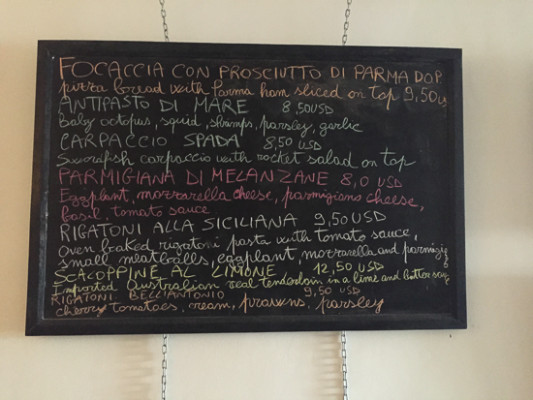 FOCACCIA CON PROSCIUTTO DI PARMA DOP
pizza bread with parma ham sliced on top 9,50 U
ANTIPASTO DI MARE 8,50USD
Baby octopus, squid, shrimps, parsley, garlic
CARPACCIO SPADA' 8,50 USD
Swordfish carpaccio with rocket salad on top
PARMIGIANA DI MELANZANE 8,0 USD
Eggplant, mozzarella cheese, parmigiano cheese,
basil, tomato sauce
RIGATONI ALLA SICILIANA 9,50 USD
Oven baked rigatoni pasta with tomato sauce,
small meatballs, eggplant, mozzarella and parmigia
SCALOPPINE AL LIMONE 12,50 USD
Imported Australian veal tenderloin in a lime and butter sauce
RIGATONI BELL'ANTONIO 9,50 USD
cherry tomatoes, cream, prawns, parsley